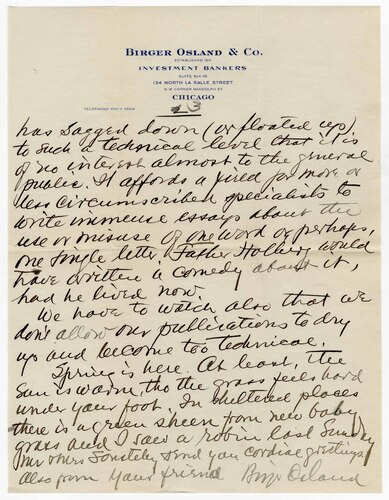 BIRGER OSLAND & CO.
ESTABLISHED 1911
INVESTMENT BANKERS
SUITE 914-18
134 NORTH LA SALLE STREET
S. W. CORNER RANDOLPH ST.
CHICAGO
TELEPHONE STATE
3
has sagged down (or floated up)
to such a technical level that it is
of no interest almost to the general
public. It affords a field for more or
less circumscribed specialists to
write immense essays about the
use or misuse of one word or, perhaps,
one single letter. Father Holberg would
have written a comedy about it,
had he lived now.
We have to watch also that we
don't allow our publications to dry
up and become too technical.
Spring is here. At least, the
sun is warm, tho the grass feels hard
under your foot. In sheltered places
there is a green sheen from new baby
grass and I saw a robin last Sunday
send you cordial greetings
also from your friend Birger Osland